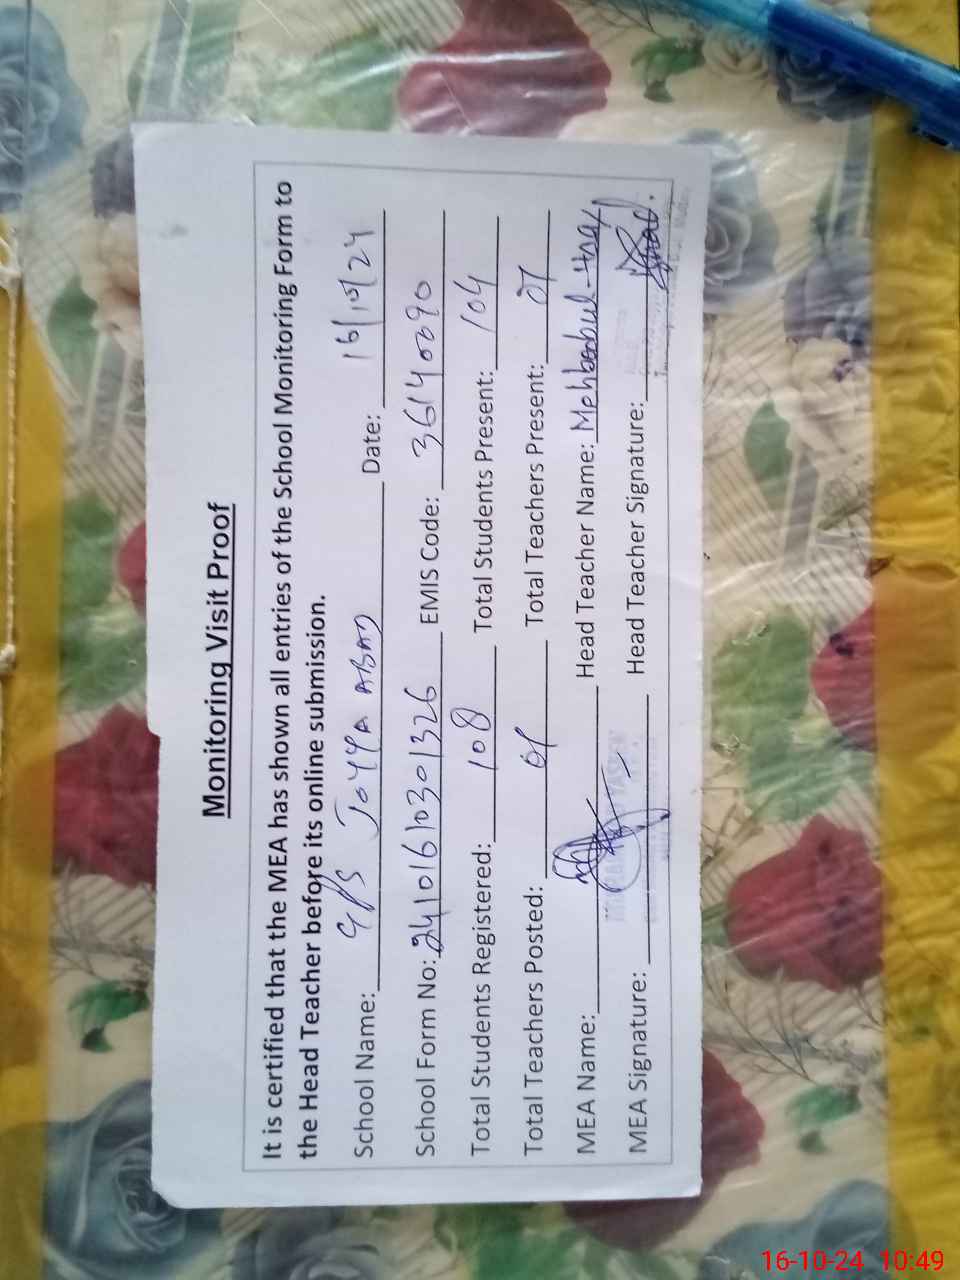 Monitoring Visit Proof
It is certified that the MEA has shown all entries of the School Monitoring Form to
the Head Teacher before its online submission.
School Name: GPS Joyya ABAD Date: 16/10/24
School Form No: 24101610301326 EMIS Code: 36140090
Total Students Registered: 108 Total Students Present: 104
Total Teachers Posted: Total Teachers Present:
MEA Name: Head Teacher Name: Mehboobul-Haq
MEA Signature: Head Teacher Signature:
16-10-24 10:49